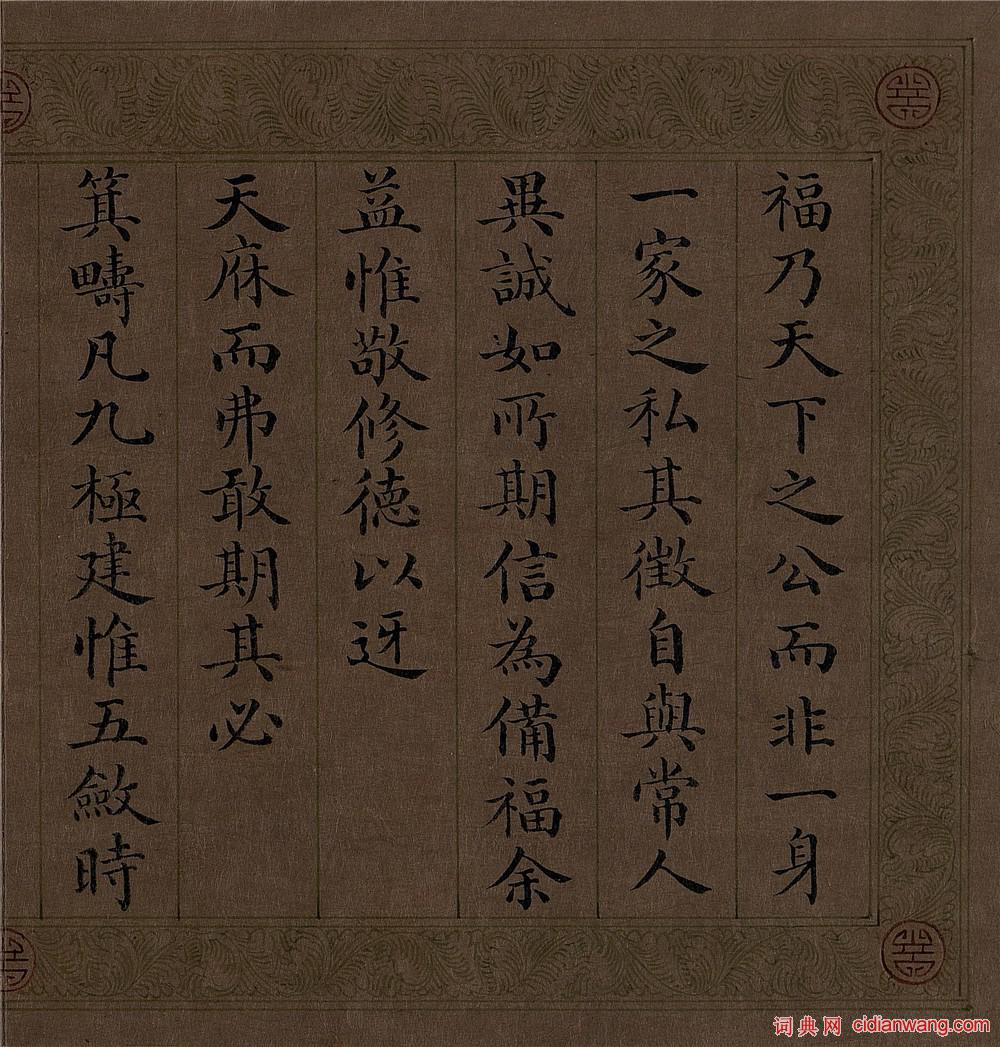 福乃天下之公而非一身
一家之私其徵自與常人
異誠如所期信為備福余
益惟敬修德以迓
天庥而弗敢期其必
箕疇凡九極建惟五斂時
词典网 cidianwang.com